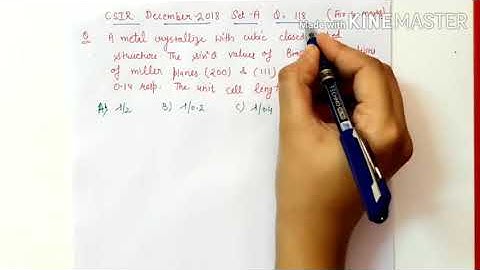 CSIR December-2018 Set-A Q. 118 (For 4 marks)
Made with KINEMASTER
Q A metal crystallize with cubic closed
structure. The sin²θ values of
of miller planes (200) & (111)
0.14 resp. The unit cell leng
A) λ/2 B) λ/0.2 C) λ/0.4